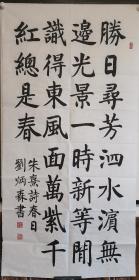 勝日尋芳泗水濱無
邊光景一時新等閒
識得東風面萬紫千
紅總是春
朱熹詩春日
劉炳森書